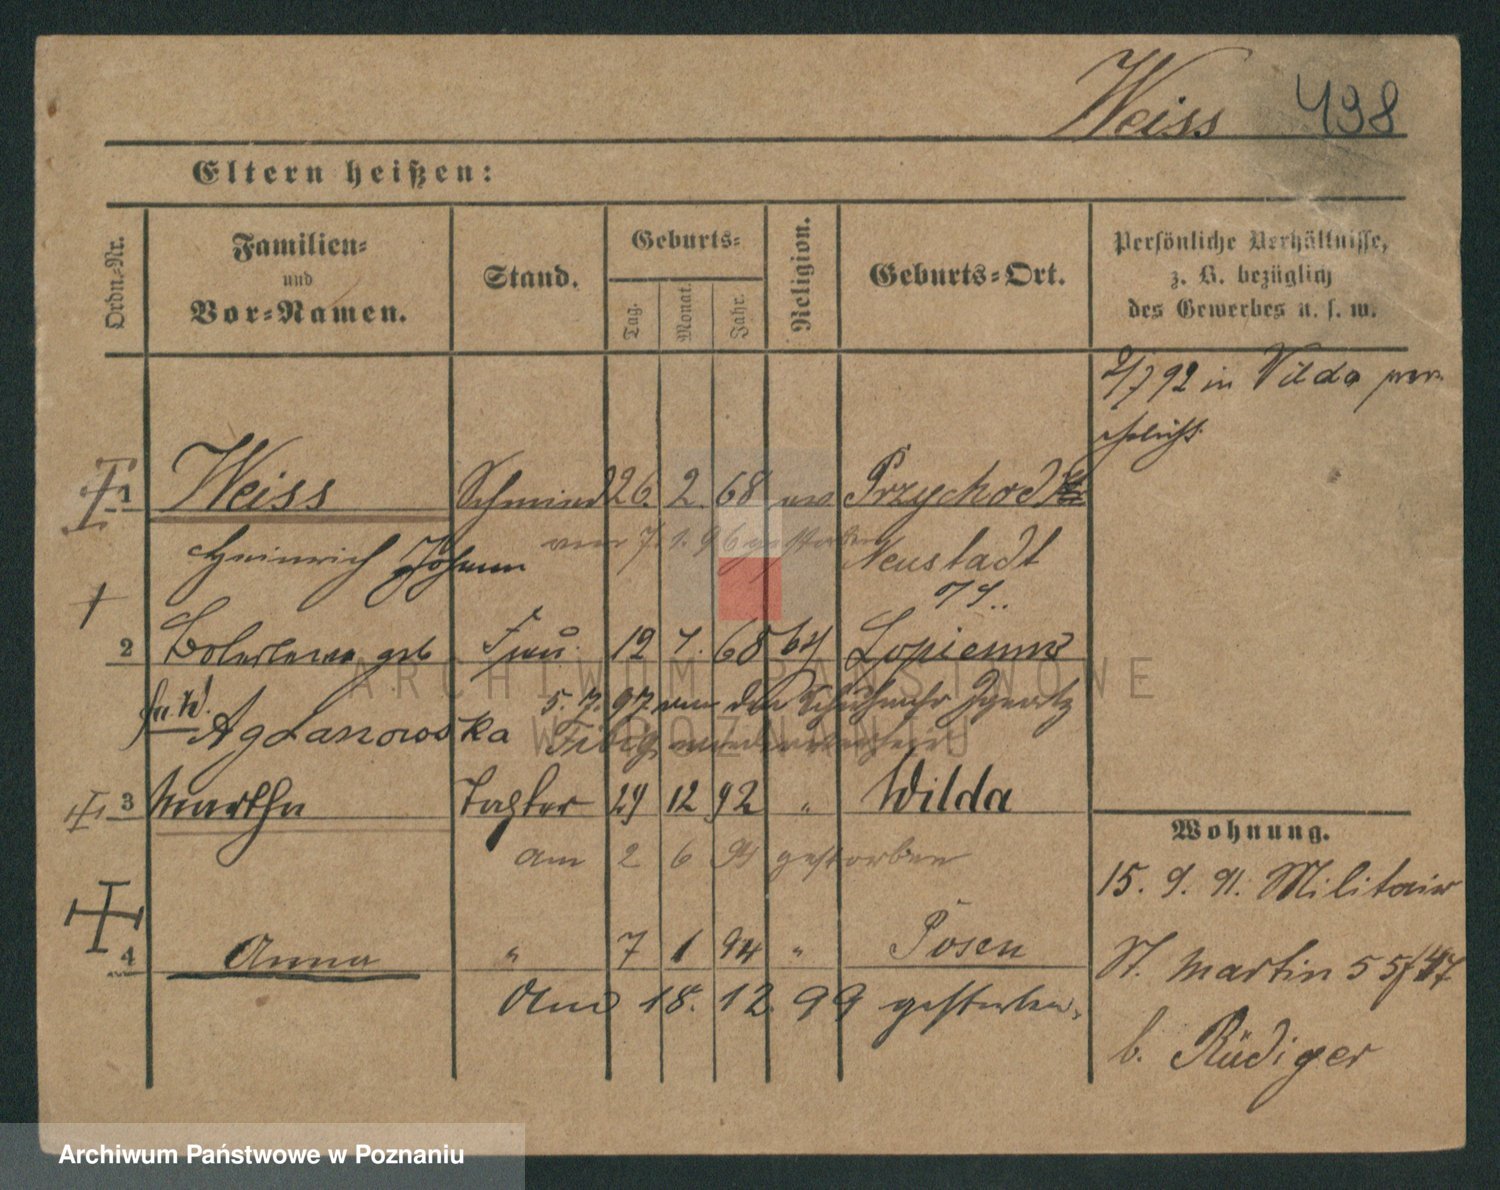 Weiss 498
Eltern heißen:
Ordn.-Nr.
Familien-
und
Vor-Namen.
Stand.
Geburts-
Tag.
Monat.
Jahr.
Religion.
Geburts-Ort.
Persönliche Verhältnisse,
z. B. bezüglich
des Gewerbes u. s. w.
2/7 92 in Wilda ver-
ehelicht.
1 Weiss Schmied 26. 2. 68 ev Przychod
Heinrich Johann
7. 1. 96 gestorben
Neustadt
2 geb Frau 12 7. 68 Lopienno
Agdanowska
5. 7. 97 von dem
3 Martha Tochter 29 12 92 " Wilda
am 2 6 gestorben
4 Anna " 7 1 94 " Posen
Am 18. 12. 99 gestorben.
Wohnung.
15. 9. 91. Militair
St. Martin
b. Rüdiger
ARCHIWUM PAŃSTWOWE
W POZNANIU
Archiwum Państwowe w Poznaniu